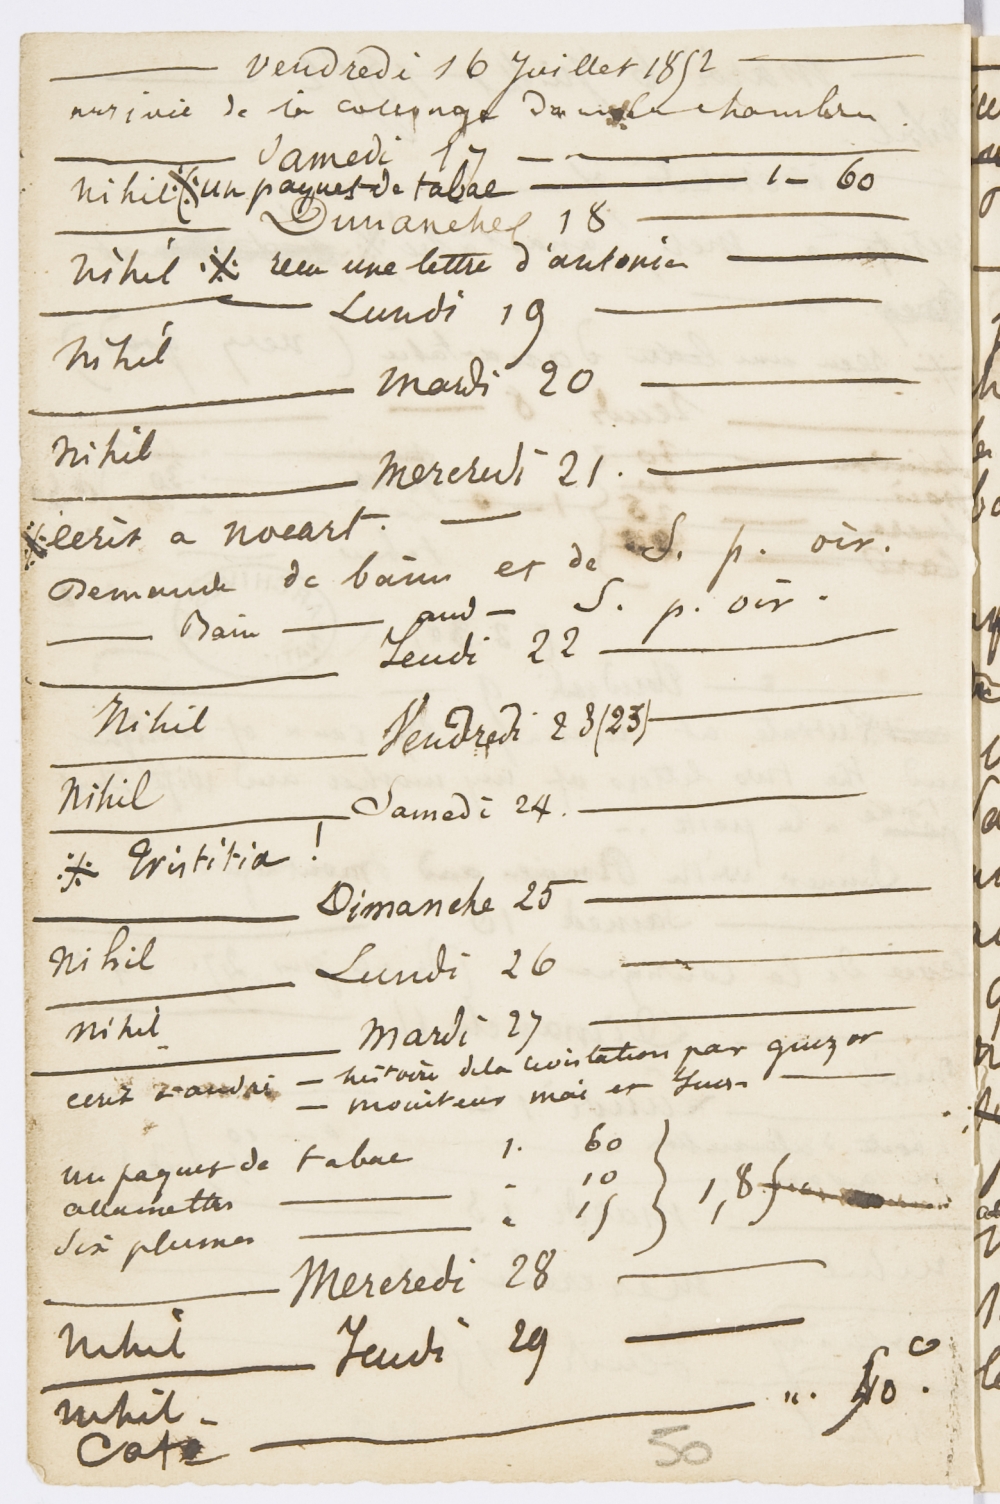 Vendredi 16 Juillet 1852
de la dans la chambre
Samedi 17
Nihil ※ (un paquet de tabac 1 - 60
Dimanche 18
Nihil ※ recu une lettre d'antonia
Lundi 19
Nihil
Mardi 20
Nihil
Mercredi 21.
※ ecrit a nocart.
Demande de bains et de S. p. oir.
Bain and S. p. oir.
Jeudi 22
Nihil
Vendredi 23 (23)
Nihil
Samedi 24.
※ Tristitia !
Dimanche 25
Nihil
Lundi 26
Nihil
Mardi 27
histoire de la civilisation par guizot
ecrit moniteur mai et
un paquet de tabac 1. 60
allumettes " 10
dix plumes " 15
1,85
Mercredi 28
Nihil
Jeudi 29
Nihil -
Cafe ". 40.
50